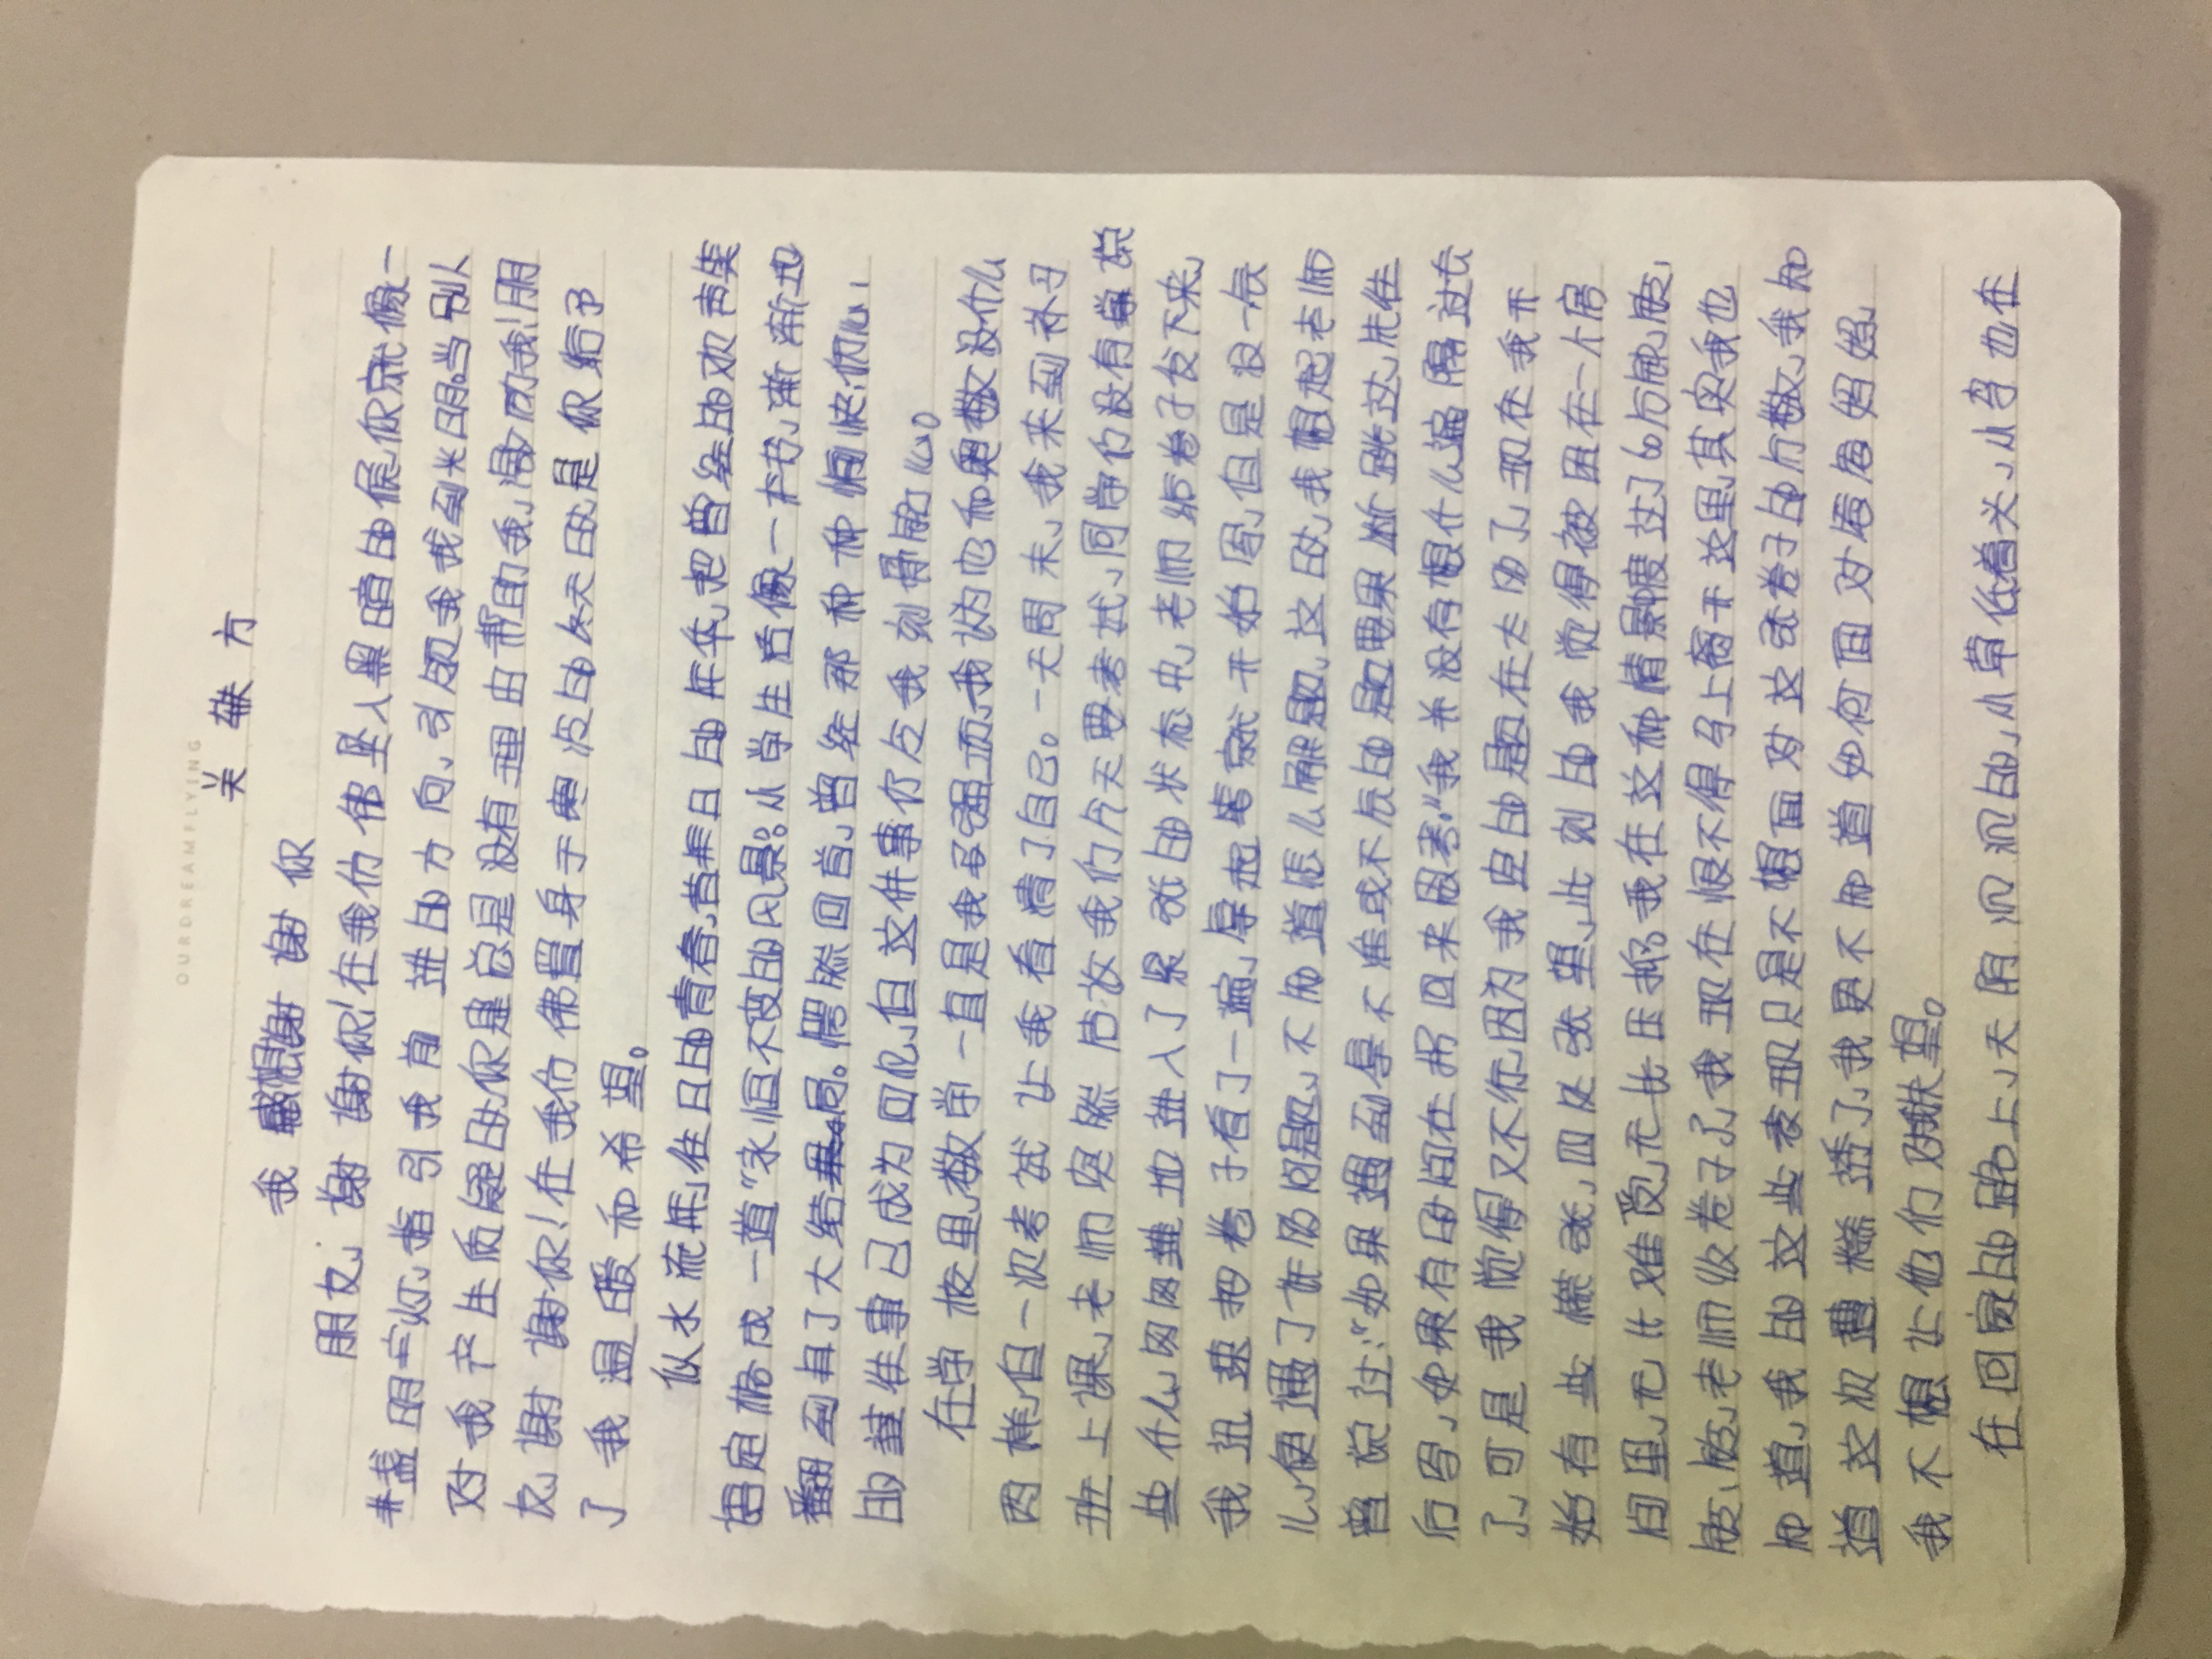 OURDREAMFLYING
关 轶 方
我 感想谢 谢 你
朋友,谢 谢你!在我仿 佛 坠入黑暗的候,你就像一
盏明灯,指引我前进的方向,引领我 我到光明。当别人
对我产生质疑时,你是总是没有理由帮助我,鼓励我!朋
友,谢谢你!在我仿佛置身于寒冷的冬天时,是你给予
了我温暖和希望。
似水流年,往日的青春,昔年日的年华,把曾经的欢声笑
语定格成一道“永恒不破的风景。从学生后像一本书,渐渐地
翻到了大结局。愕然回首,曾经那种种愉快,伤心,
的 往事已成为回忆,但这件事仍令我刻骨铭心。
在学校里,数学一直是我 弱项,我认为它和奥数没什么
两样,但一次考试让我看清了自己。一天周末,我来到补习
班上课,老师突然告放我们今天要考试,同学们没有 说
些什么,因 地进入了紧张的状态中,老师把卷子发下来,
我迅速把卷子看了一遍,拿起笔就开始写,但是没一会
儿,便遇了一 问题,不知道怎么解题,这时,我想起老师
曾说过:“如果遇到拿不准或不会的题要果断跳过,先往
后写,如果有时间在拐回来思考。”我并没有想什么 过去
了,可是我觉得又不行,因为我空的题在太多了,现在我开
始有些慌张,四处张望,此刻的我觉得被困在一个房
间里,无比难受,无比压抑。我在这种情景中度过了60分钟,最
后,老师收卷子了,我现在恨不得马上离开这里,其实我也
知道,我的这些表现只是不想面对这张卷子的分数,我知
道这次遭糕透了,我更不知道如何面对爸爸妈妈,
我不想让他们对我失望。
在回家的路上,天阴沉沉的,小草低着头,小鸟也在